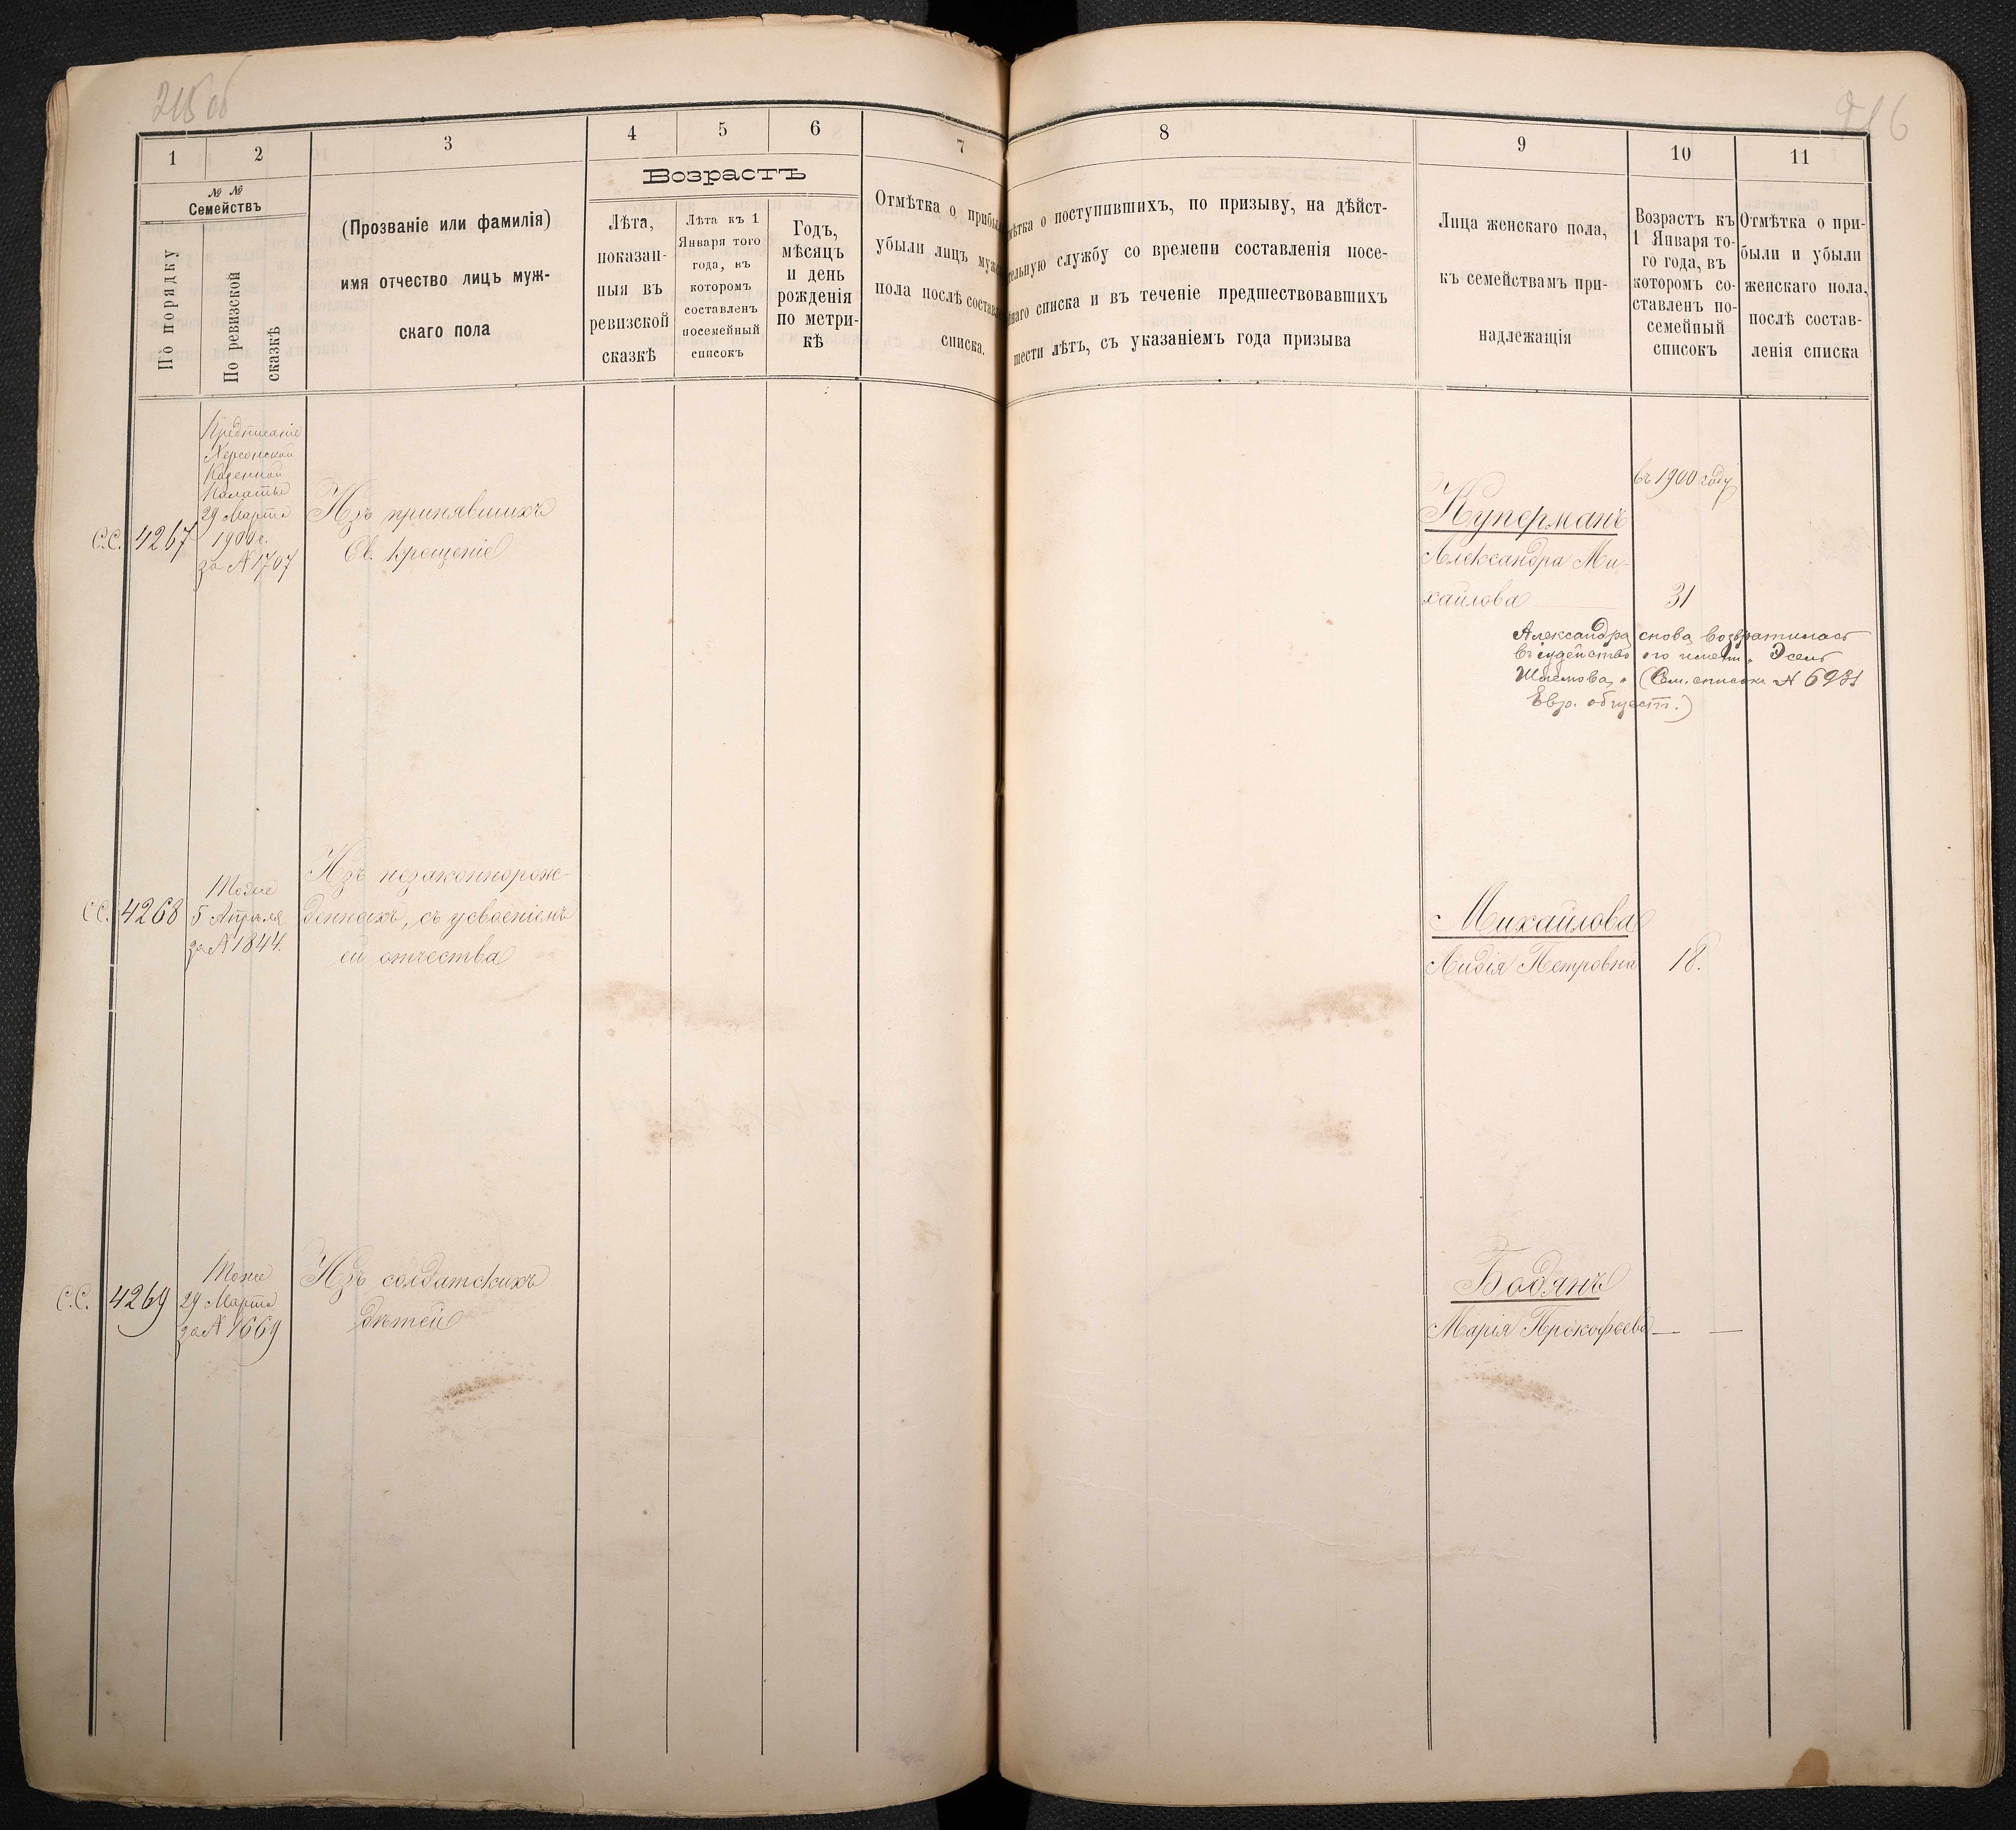 215 об
216
1
2
3
4
5
6
7
8
9
10
11
№ №
Семействъ
По порядку
По ревизской
сказкѣ
(Прозваніе или фамилія)
имя отчество лицъ муж-
скаго пола
Возрастъ
Лѣта,
показан-
ныя въ
ревизской
сказкѣ
Лѣта къ 1
Января того
года, въ
которомъ
составленъ
посемейный
списокъ
Годъ,
мѣсяцъ
и день
рожденія
по метри-
кѣ
Отмѣтка о прибы
убыли лицъ муж
пола послѣ состав
списка.
мѣтка о поступившихъ, по призыву, на дѣйст-
тельную службу со времени составленія посе-
наго списка и въ теченіе предшествовавшихъ
шести лѣтъ, съ указаніемъ года призыва
Лица женскаго пола,
къ семействамъ при-
надлежащія
Возрастъ къ
1 Января то-
го года, въ
которомъ со-
ставленъ по-
семейный
списокъ
Отмѣтка о при-
были и убыли
женскаго пола,
послѣ состав-
ленія списка
С.С. 4267
Предписаніе
Херсонской
Казенной
Палаты
29 Марта
1900 г.
за № 1707
Изъ принявшихъ
Св. крещеніе
въ 1900 году
Куперманъ
Александра Ми-
хайлова 31
Александра снова возвратилась
въ іудейство по имени „Эсель
Шлемова“ (Сем. списокъ № 6931
Евр. общест.)
С.С. 4268
Тоже
5 Апрѣля
за № 1844.
Изъ незаконнорож-
денныхъ, съ усвоеніемъ
ей отчества
Михайлова
Лидія Петровна 18.
С.С. 4269
Тоже
29 Марта
за № 1669
Изъ солдатскихъ
дѣтей
Бодянъ
Марія Прокофьева — —